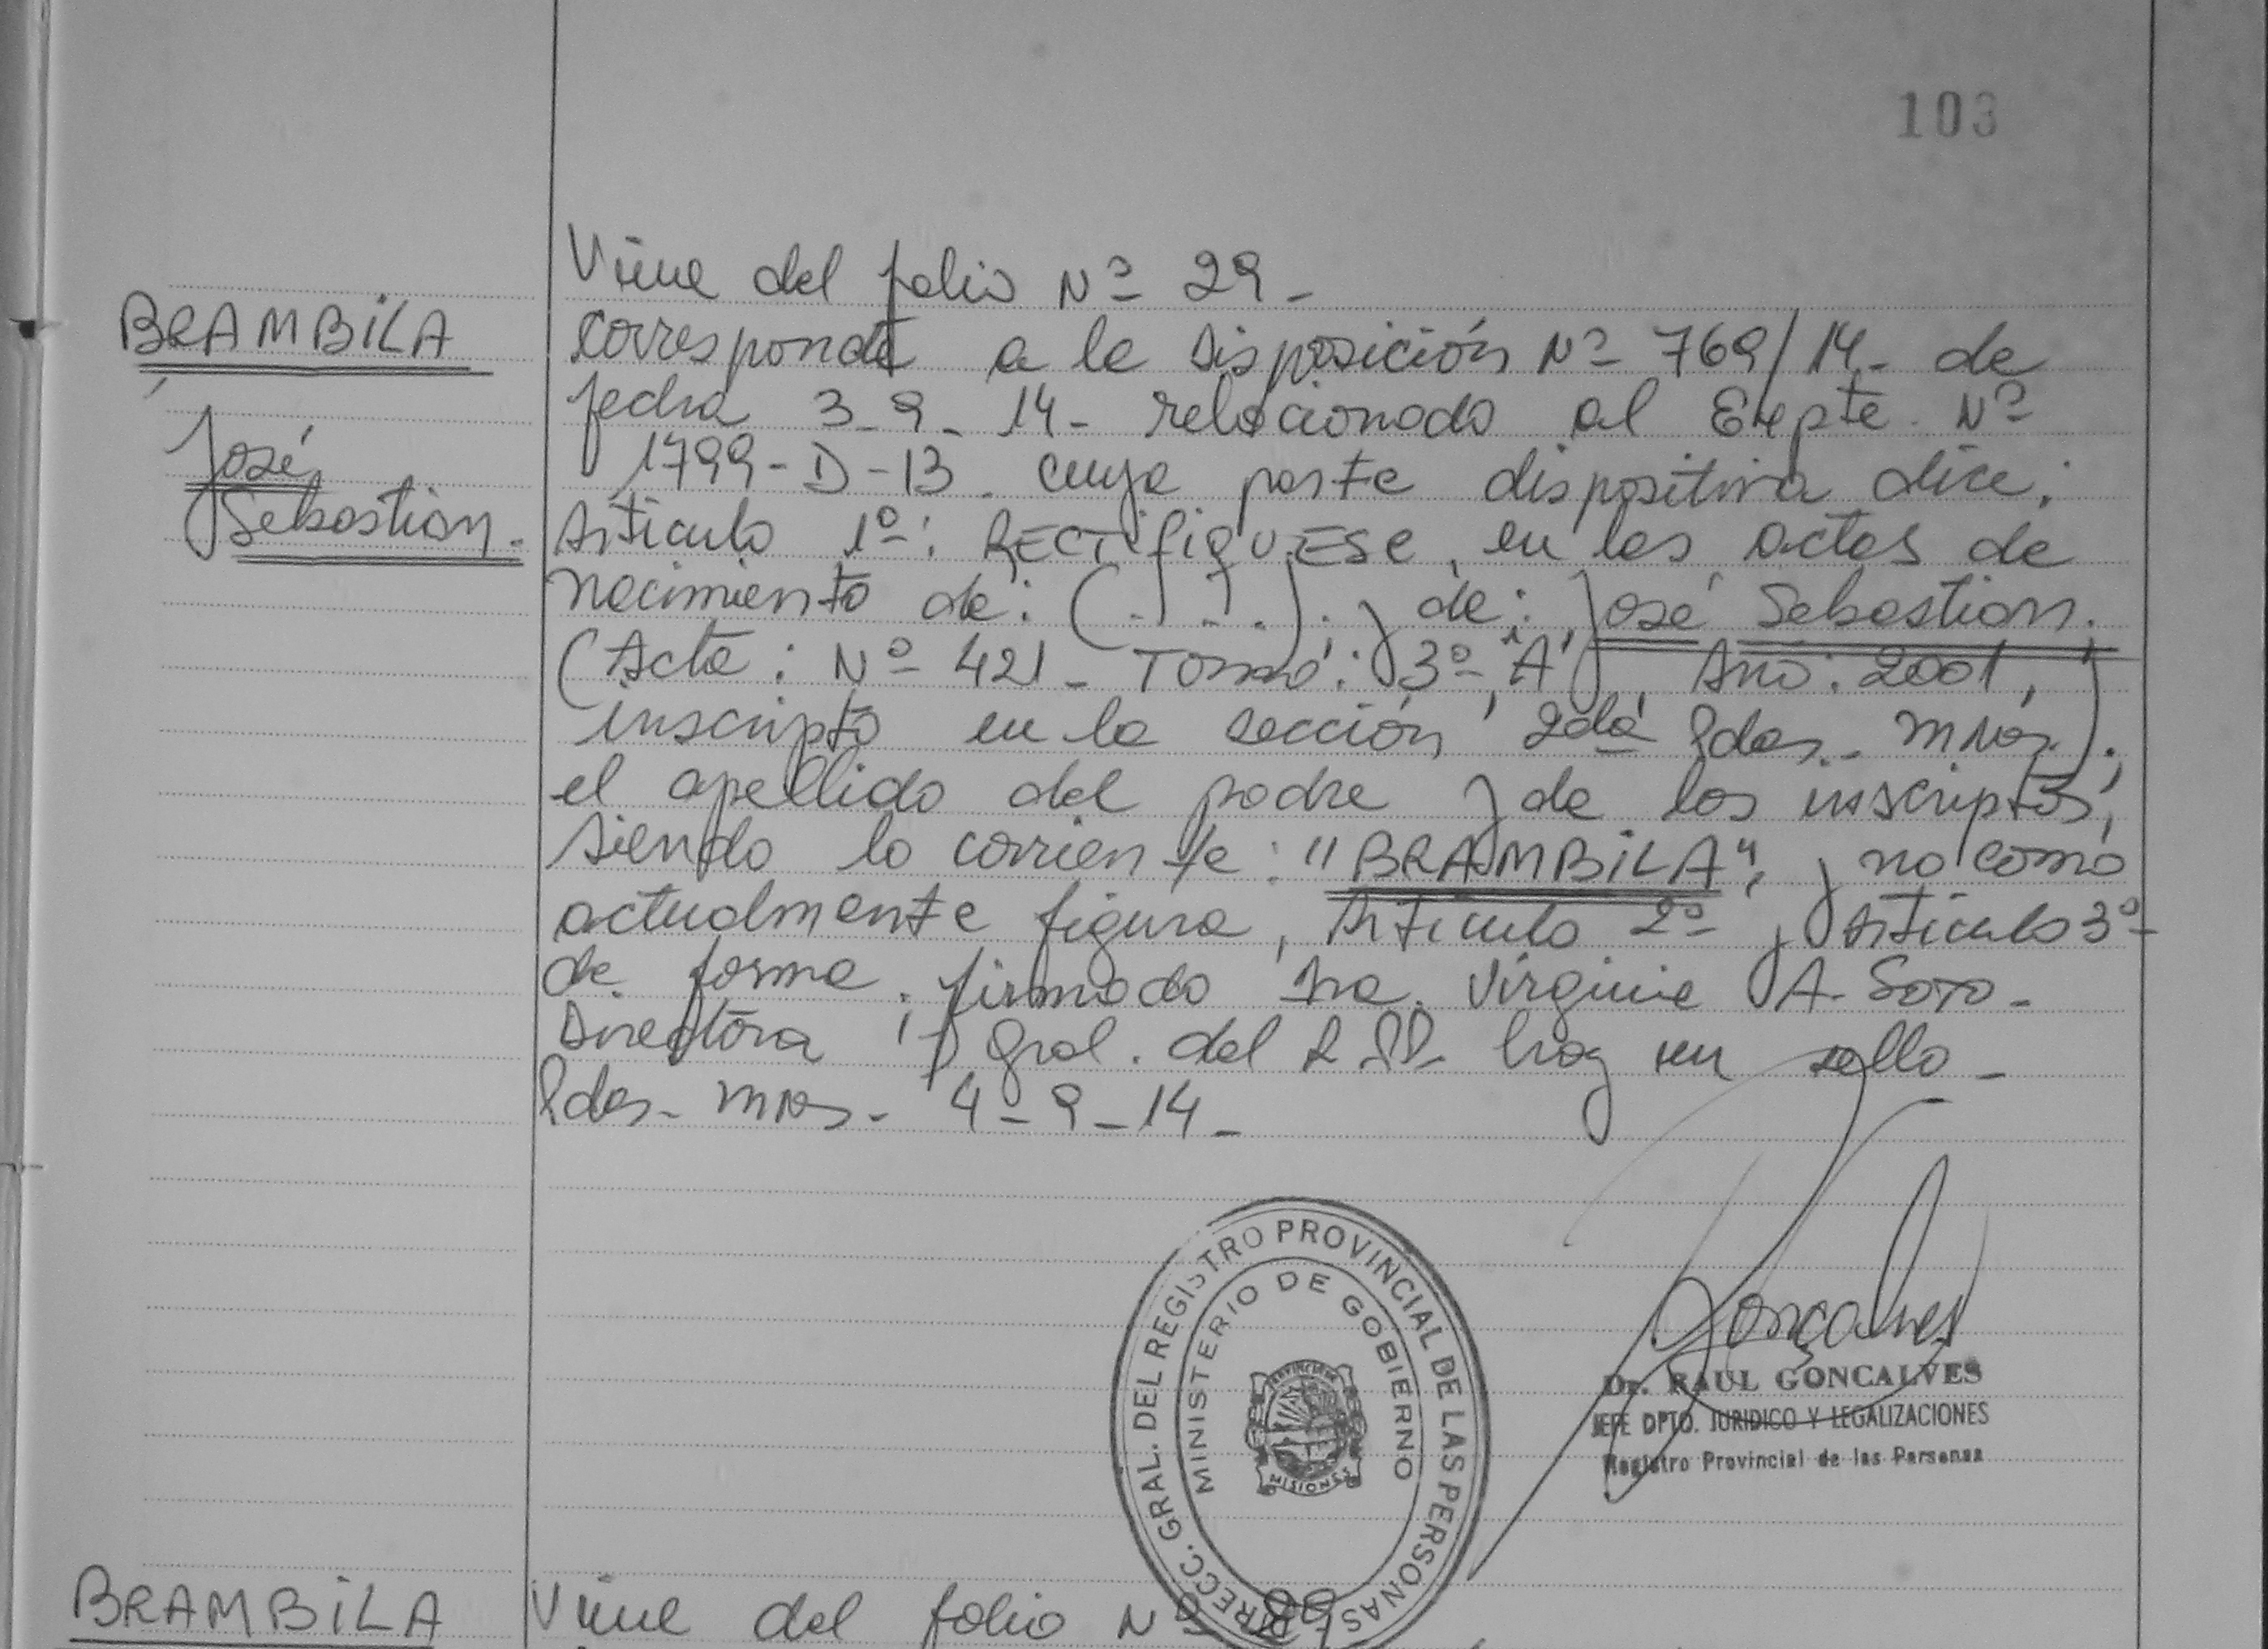 103
BRAMBILA
José
Sebastian.
Viene del folio Nº 29 -
Corresponde a la Disposición Nº 769/14 - de
fecha 3-9-14 - relacionado al Expte. Nº
1799-D-13. cuya parte dispositiva dice:
Artículo 1º: RECTIFIQUESE, en las actas de
nacimiento de: (. . . .). y de: José Sebastian.
(Acta: Nº 421 - Tomo: 3º "A", Año: 2001,
inscripto en la sección 2da Pdas. Mnes.).
el apellido del padre y de los inscriptos,
siendo lo corriente: "BRAMBILA", y no como
actualmente figura, Artículo 2º y Artículo 3º
de forma. firmado Dra. Virginia A. Soto -
Directora Gral. del R.PP. hay un sello -
Pdas. Mnes. 4-9-14 -
DIRECC. GRAL. DEL REGISTRO PROVINCIAL DE LAS PERSONAS
MINISTERIO DE GOBIERNO
PROVINCIA DE
MISIONES
Gonçalves
Dr. RAUL GONCALVES
JEFE DPTO. JURIDICO Y LEGALIZACIONES
Registro Provincial de las Personas
BRAMBILA
Viene del folio Nº 29